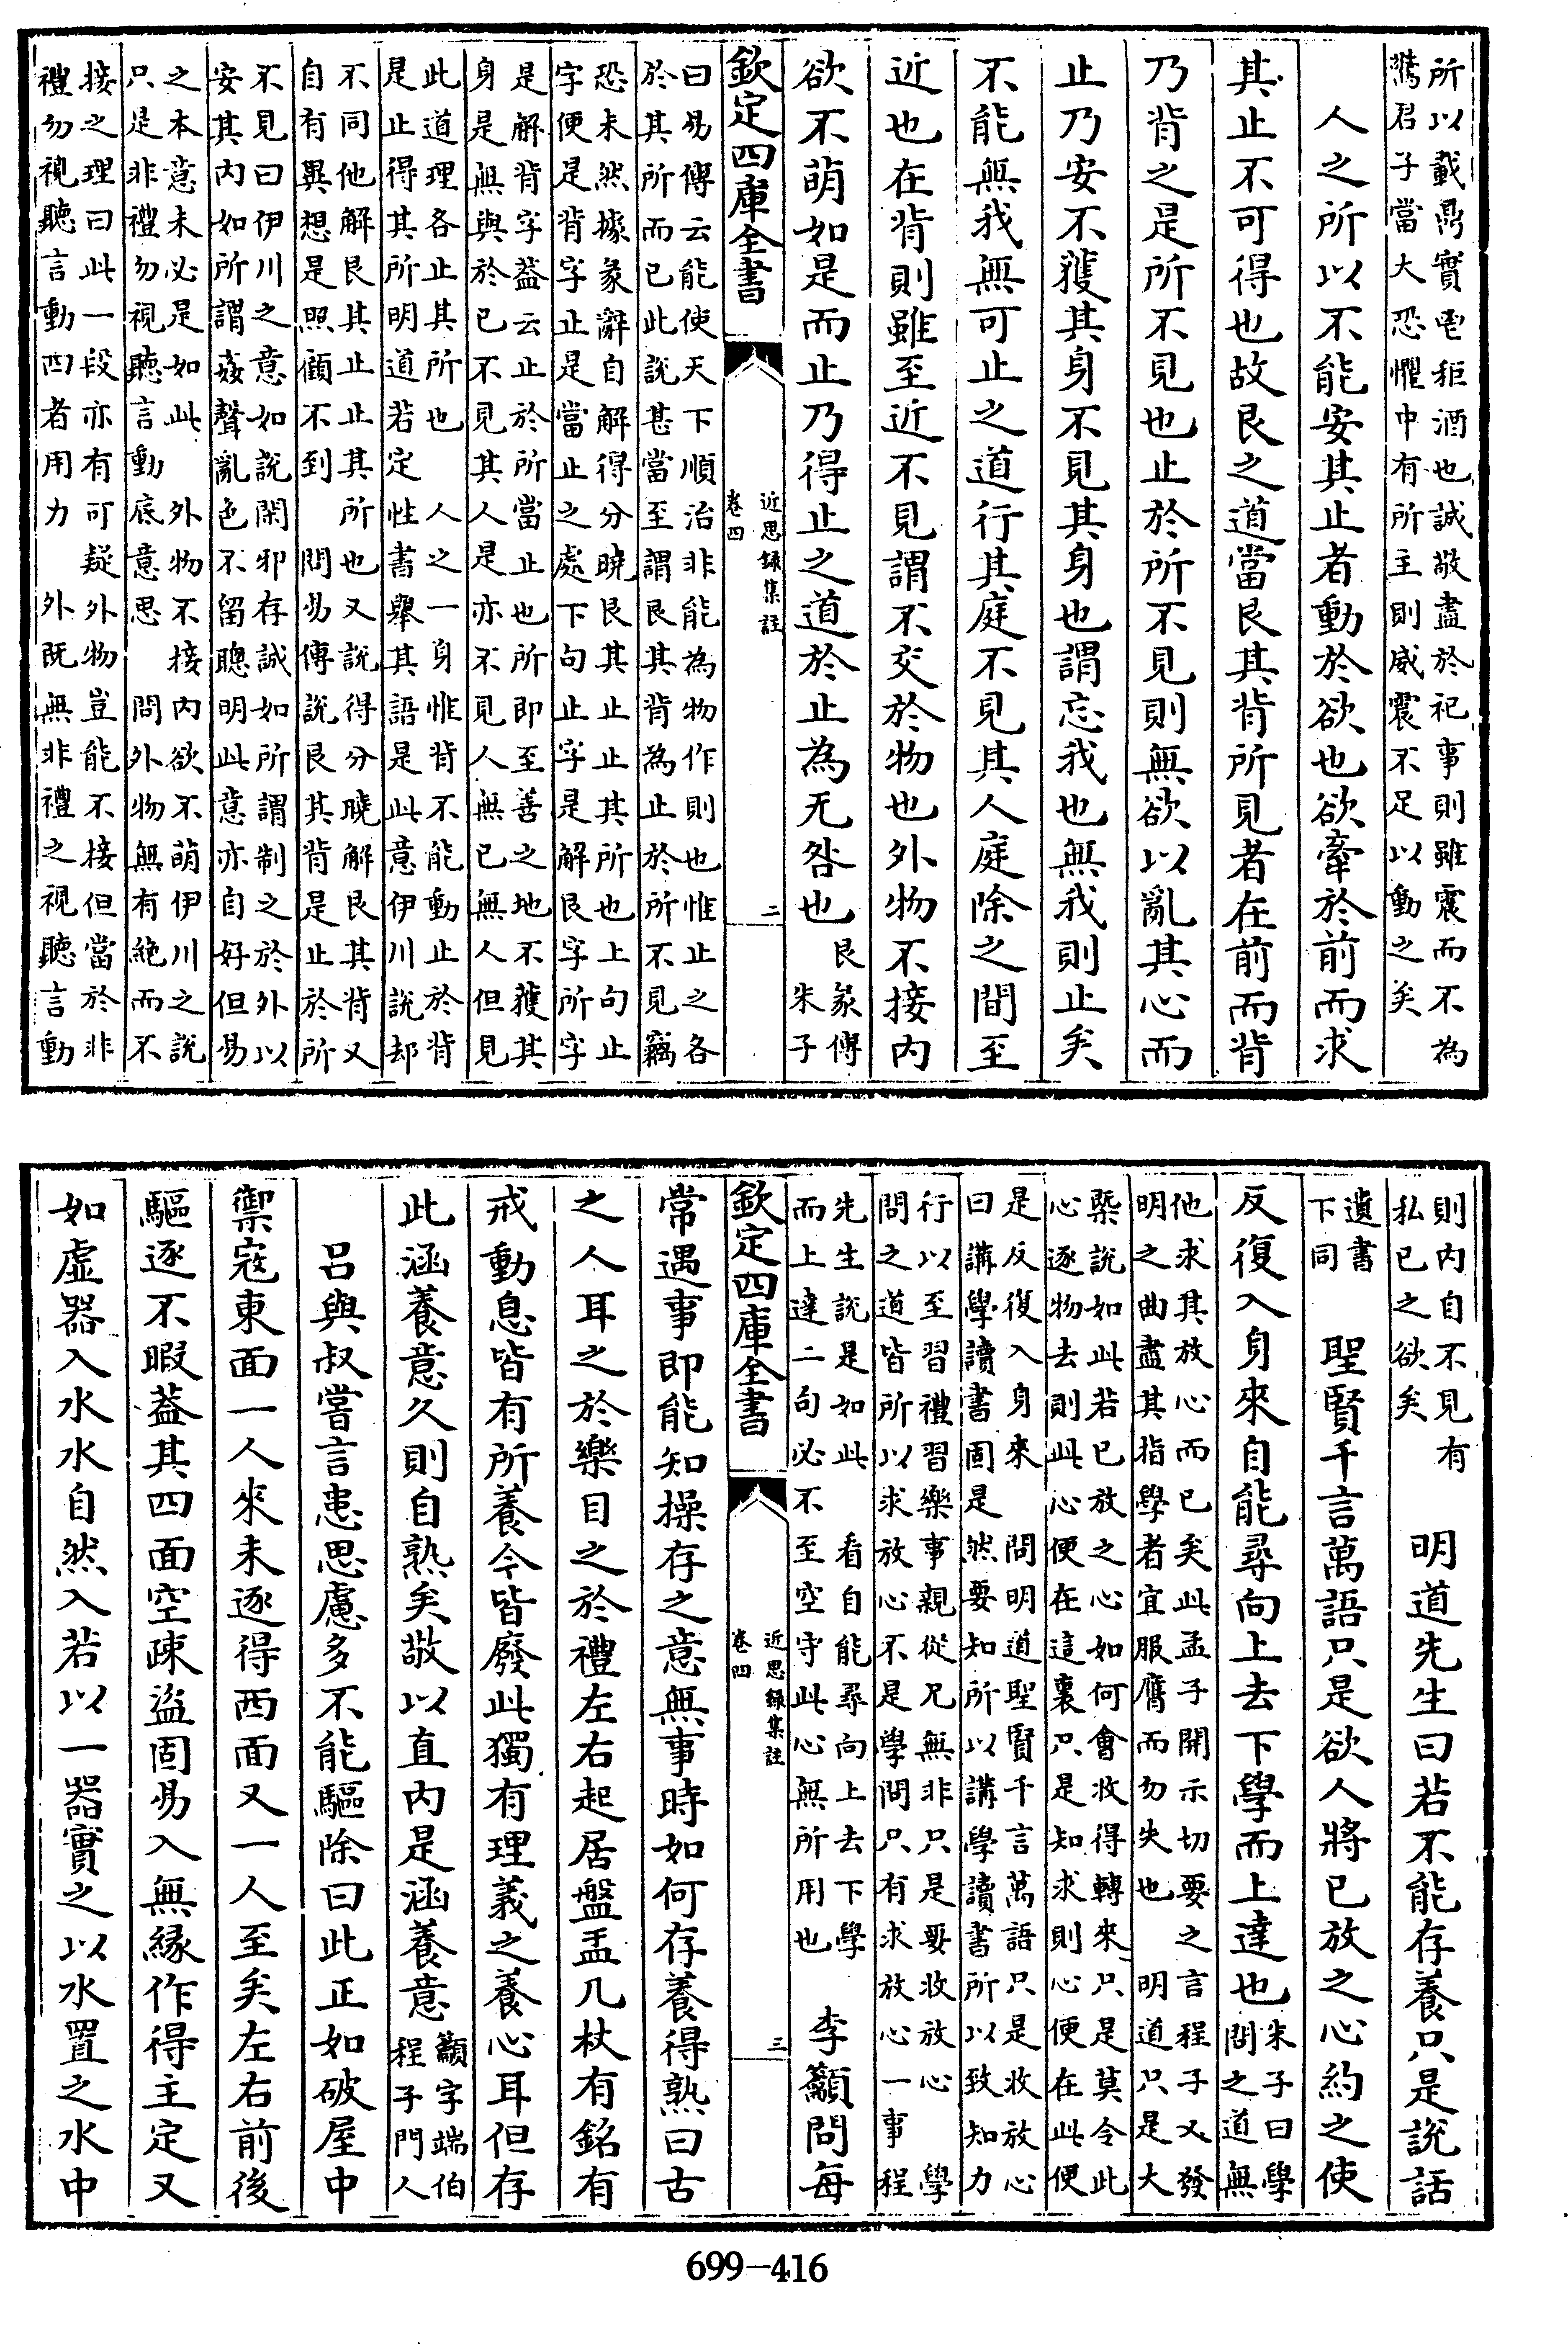 所以載鼎實鬯秬酒也誠敬盡於祀事則雖震而不為
驚君子當大恐懼中有所主則威震不足以動之矣
人之所以不能安其止者動於欲也欲牽於前而求
其止不可得也故艮之道當艮其背所見者在前而背
乃背之是所不見也止於所不見則無欲以亂其心而
止乃安不獲其身不見其身也謂忘我也無我則止矣
不能無我無可止之道行其庭不見其人庭除之間至
近也在背則雖至近不見謂不交於物也外物不接内
欲不萌如是而止乃得止之道於止為无咎也
艮彖傳
朱子
欽定四庫全書
近思錄集註
卷四
二
曰易傳云能使天下順治非能為物作則也惟止之各
於其所而已此說甚當至謂艮其背為止於所不見竊
恐未然據彖辭自解得分曉艮其止止其所也上句止
字便是背字止是當止之處下句止字是解艮字所字
是解背字葢云止於所當止也所即至善之地不獲其
身是無與於已不見其人是亦不見人無已無人但見
此道理各止其所也　人之一身惟背不能動止於背
是止得其所明道若定性書舉其語是此意伊川說却
不同他解艮其止止其所也又說得分曉解艮其背又
自有異想是照顧不到　問易傳說艮其背是止於所
不見曰伊川之意如說閑邪存誠如所謂制之於外以
安其内如所謂姦聲亂色不留聰明此意亦自好但易
之本意未必是如此　外物不接内欲不萌伊川之說
只是非禮勿視聽言動底意思　問外物無有絶而不
接之理曰此一段亦有可疑外物豈能不接但當於非
禮勿視聽言動四者用力　外既無非禮之視聽言動
則内自不見有
私已之欲矣
明道先生曰若不能存養只是說話
遺書
下同
聖賢千言萬語只是欲人將已放之心約之使
反復入身來自能尋向上去下學而上達也
朱子曰學
問之道無
他求其放心而已矣此孟子開示切要之言程子又發
明之曲盡其指學者宜服膺而勿失也　明道只是大
槩說如此若已放之心如何會收得轉來只是莫令此
心逐物去則此心便在這裏只是知求則心便在此便
是反復入身來　問明道聖賢千言萬語只是收放心
曰講學讀書固是然要知所以講學讀書所以致知力
行以至習禮習樂事親從兄無非只是要收放心　學
問之道皆所以求放心不是學問只有求放心一事程
先生說是如此　看自能尋向上去下學
而上達二句必不至空守此心無所用也
李籲問每
欽定四庫全書
近思錄集註
卷四
三
常遇事即能知操存之意無事時如何存養得熟曰古
之人耳之於樂目之於禮左右起居盤盂几杖有銘有
戒動息皆有所養今皆廢此獨有理義之養心耳但存
此涵養意久則自熟矣敬以直内是涵養意
籲字端伯
程子門人
呂與叔嘗言患思慮多不能驅除曰此正如破屋中
禦寇東面一人來未逐得西面又一人至矣左右前後
驅逐不暇葢其四面空疎盜固易入無緣作得主定又
如虛器入水水自然入若以一器實之以水置之水中
699—416